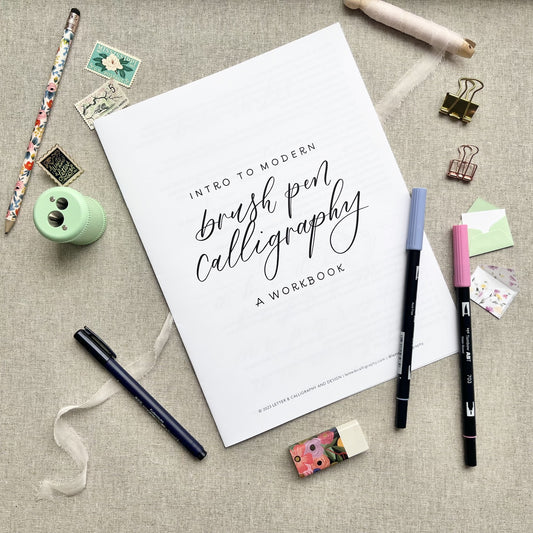 INTRO TO MODERN
brush pen
calligraphy
A WORKBOOK
© 2023 LETTER & CALLIGRAPHY AND DESIGN
Tombow ABT
703